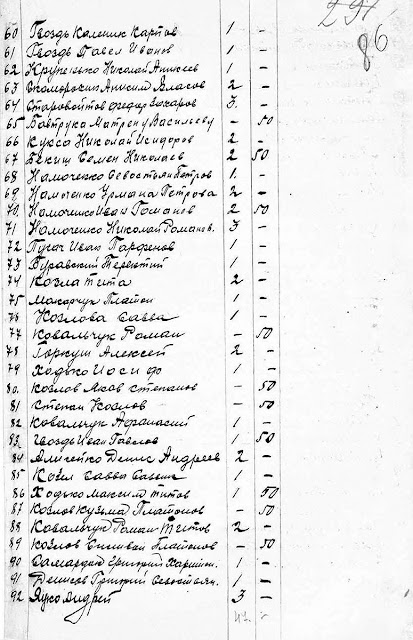 294
86
60 Гвоздь Каленик Карпов 1 -
61 Гвоздь Павел Иванов 1 -
62 Крупенько Николай Алексеев 1 -
63 Скоморохин Анисим Власов 2 -
64 Старовойтов Федор Захаров 3. -
65 Бовтрука Матрену Васильеву - 50
66 Кукса Николай Исидоров 2 -
67 Бекиш Семен Николаев 2 50
68 Намоченко Севостьян Петров 1. -
69 Намоченко Ульяна Петрова 2 -
70. Намоченко Иван Романов 2 50
71 Намоченко Николай Романов. 3 -
72 Пугач Иван Парфенов 1 -
73 Буравский Терентий 1 -
74 Козла Тита 2 -
75 Макарчук Платон 1 -
76 Козлова Савва 1 -
77 Ковальчук Роман - 50
78 Горкуш Алексей 2 -
79 Ходько Иосифо 1 -
80. Козлов Яков Степанов - 50
81 Степан Козлов - 50
82 Ковальчук Афанасий 1 -
83. Гвоздь Иван Павлов 1 50
84 Алисейко Денис Андреев 2 -
85 Козел Савва 1 -
86 Ходько Максим Титов 1 50
87 Козлов Кузьма Платонов - 50
88 Ковальчук Роман Титов 2 -
89 Козлов Платонов - 50
90 Григорий Харитон. 1 -
91 Денисов Григорий Севостьян. 1 -
92 Яцко Андрей 3 -